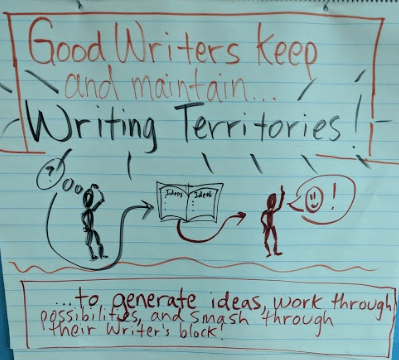 Good Writers Keep
and maintain...
Writing Territories!
?
Ideas Ideas
!
...to generate ideas, work through
possibilities, and smash through
their writer's block!